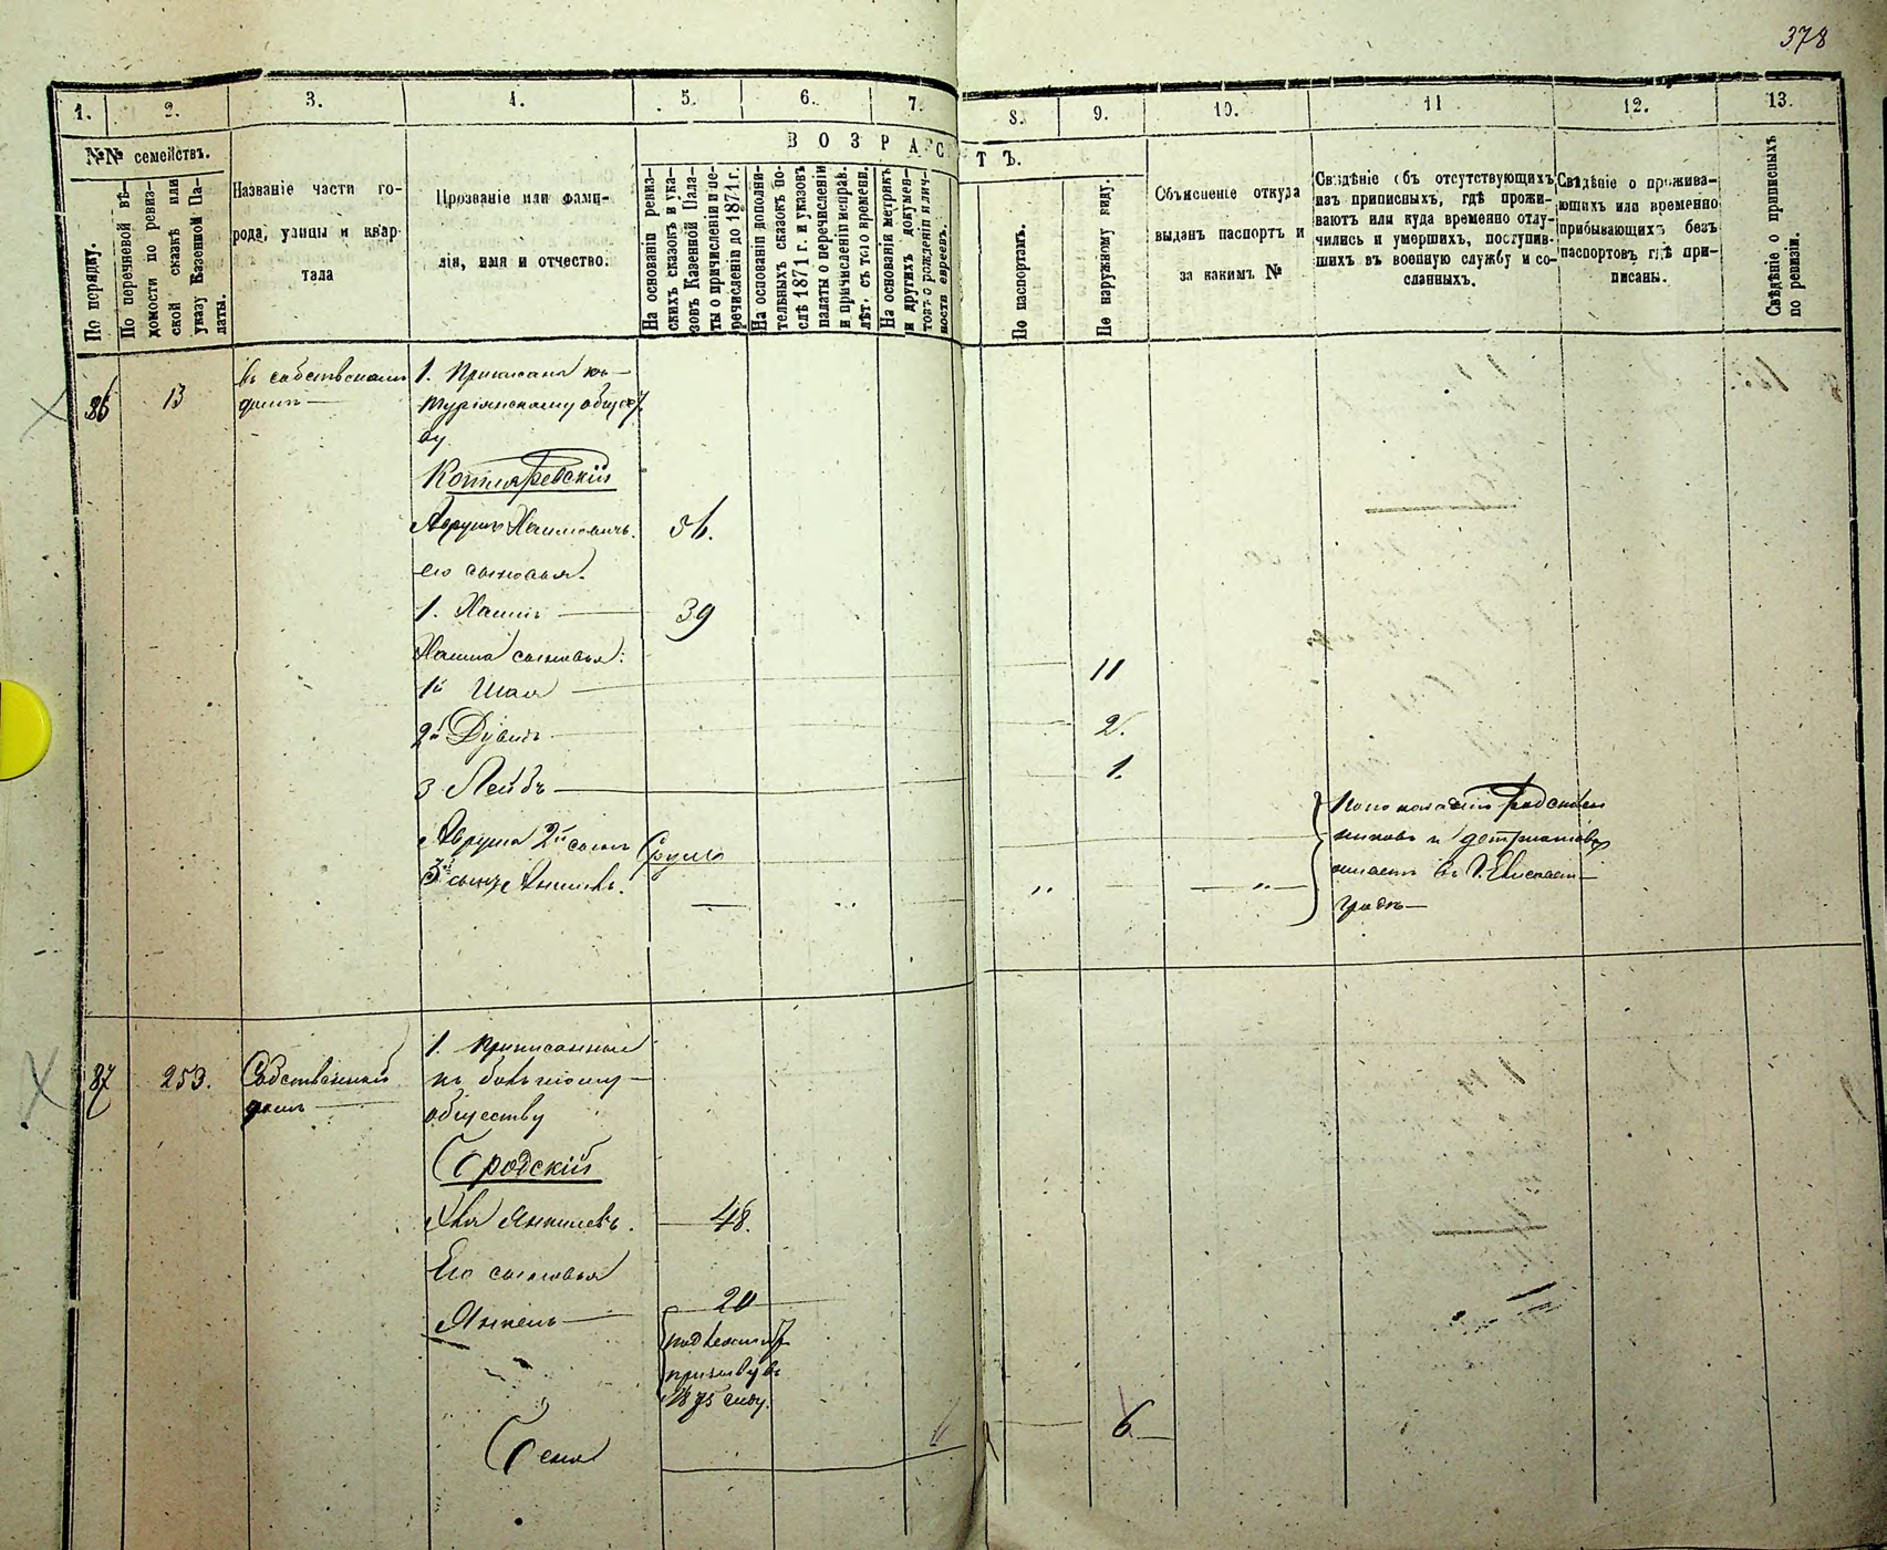 378
1.
2.
3.
4.
5.
6.
7.
8.
9.
10.
11
12.
13.
№№ семействъ.
По порядку.
По перечневой вѣ-
домости по ревиз-
ской сказкѣ или
указу Казенной Па-
латы.
Названіе части го-
рода, улицы и квар-
тала
Прозваніе или фами-
лія, имя и отчество.
ВОЗРАСТЪ.
На основаніи ревиз-
скихъ сказокъ и ука-
зовъ Казенной Пала-
ты о причисленіи и пе-
речисленіи до 1871 г.
На основаніи дополни-
тельныхъ сказокъ по-
слѣ 1871 г. и указовъ
палаты о перечисленіи
и причисленіи исправ.
лѣт. съ того времени.
На основаніи метрикъ
и другихъ докумен-
товъ о рожденіи и лич-
ности евреевъ.
По паспортамъ.
По наружному виду.
Объясненіе откуда
выданъ паспортъ и
за какимъ №
Свѣдѣніе объ отсутствующихъ
изъ приписныхъ, гдѣ прожи-
ваютъ или куда временно отлу-
чились и умершихъ, поступив-
шихъ въ военную службу и со-
сланныхъ.
Свѣдѣніе о прожива-
ющихъ или временно
прибывающихъ безъ
паспортовъ гдѣ при-
писаны.
Свѣдѣніе о приписныхъ
по ревизіи.
86 13 въ собственномъ
домѣ
1.
обществу
Котляревскій
Аврумъ Хаимовичъ. 56.
его сыновья.
1. Хаимъ 39
Хаима сыновья:
1й Шая 11
2й Дувидъ 2.
3 Лейбъ 1.
Аврума 2й сынъ Сруль
3й сынъ
и
въ г. Елисавет-
градѣ
87 253. Собственный
домъ
1. Приписанные
къ
обществу
Бродскій
Янкелевъ. 48.
Его сыновья
Янкель 20
подлежитъ
призыву въ
1875 году.
6